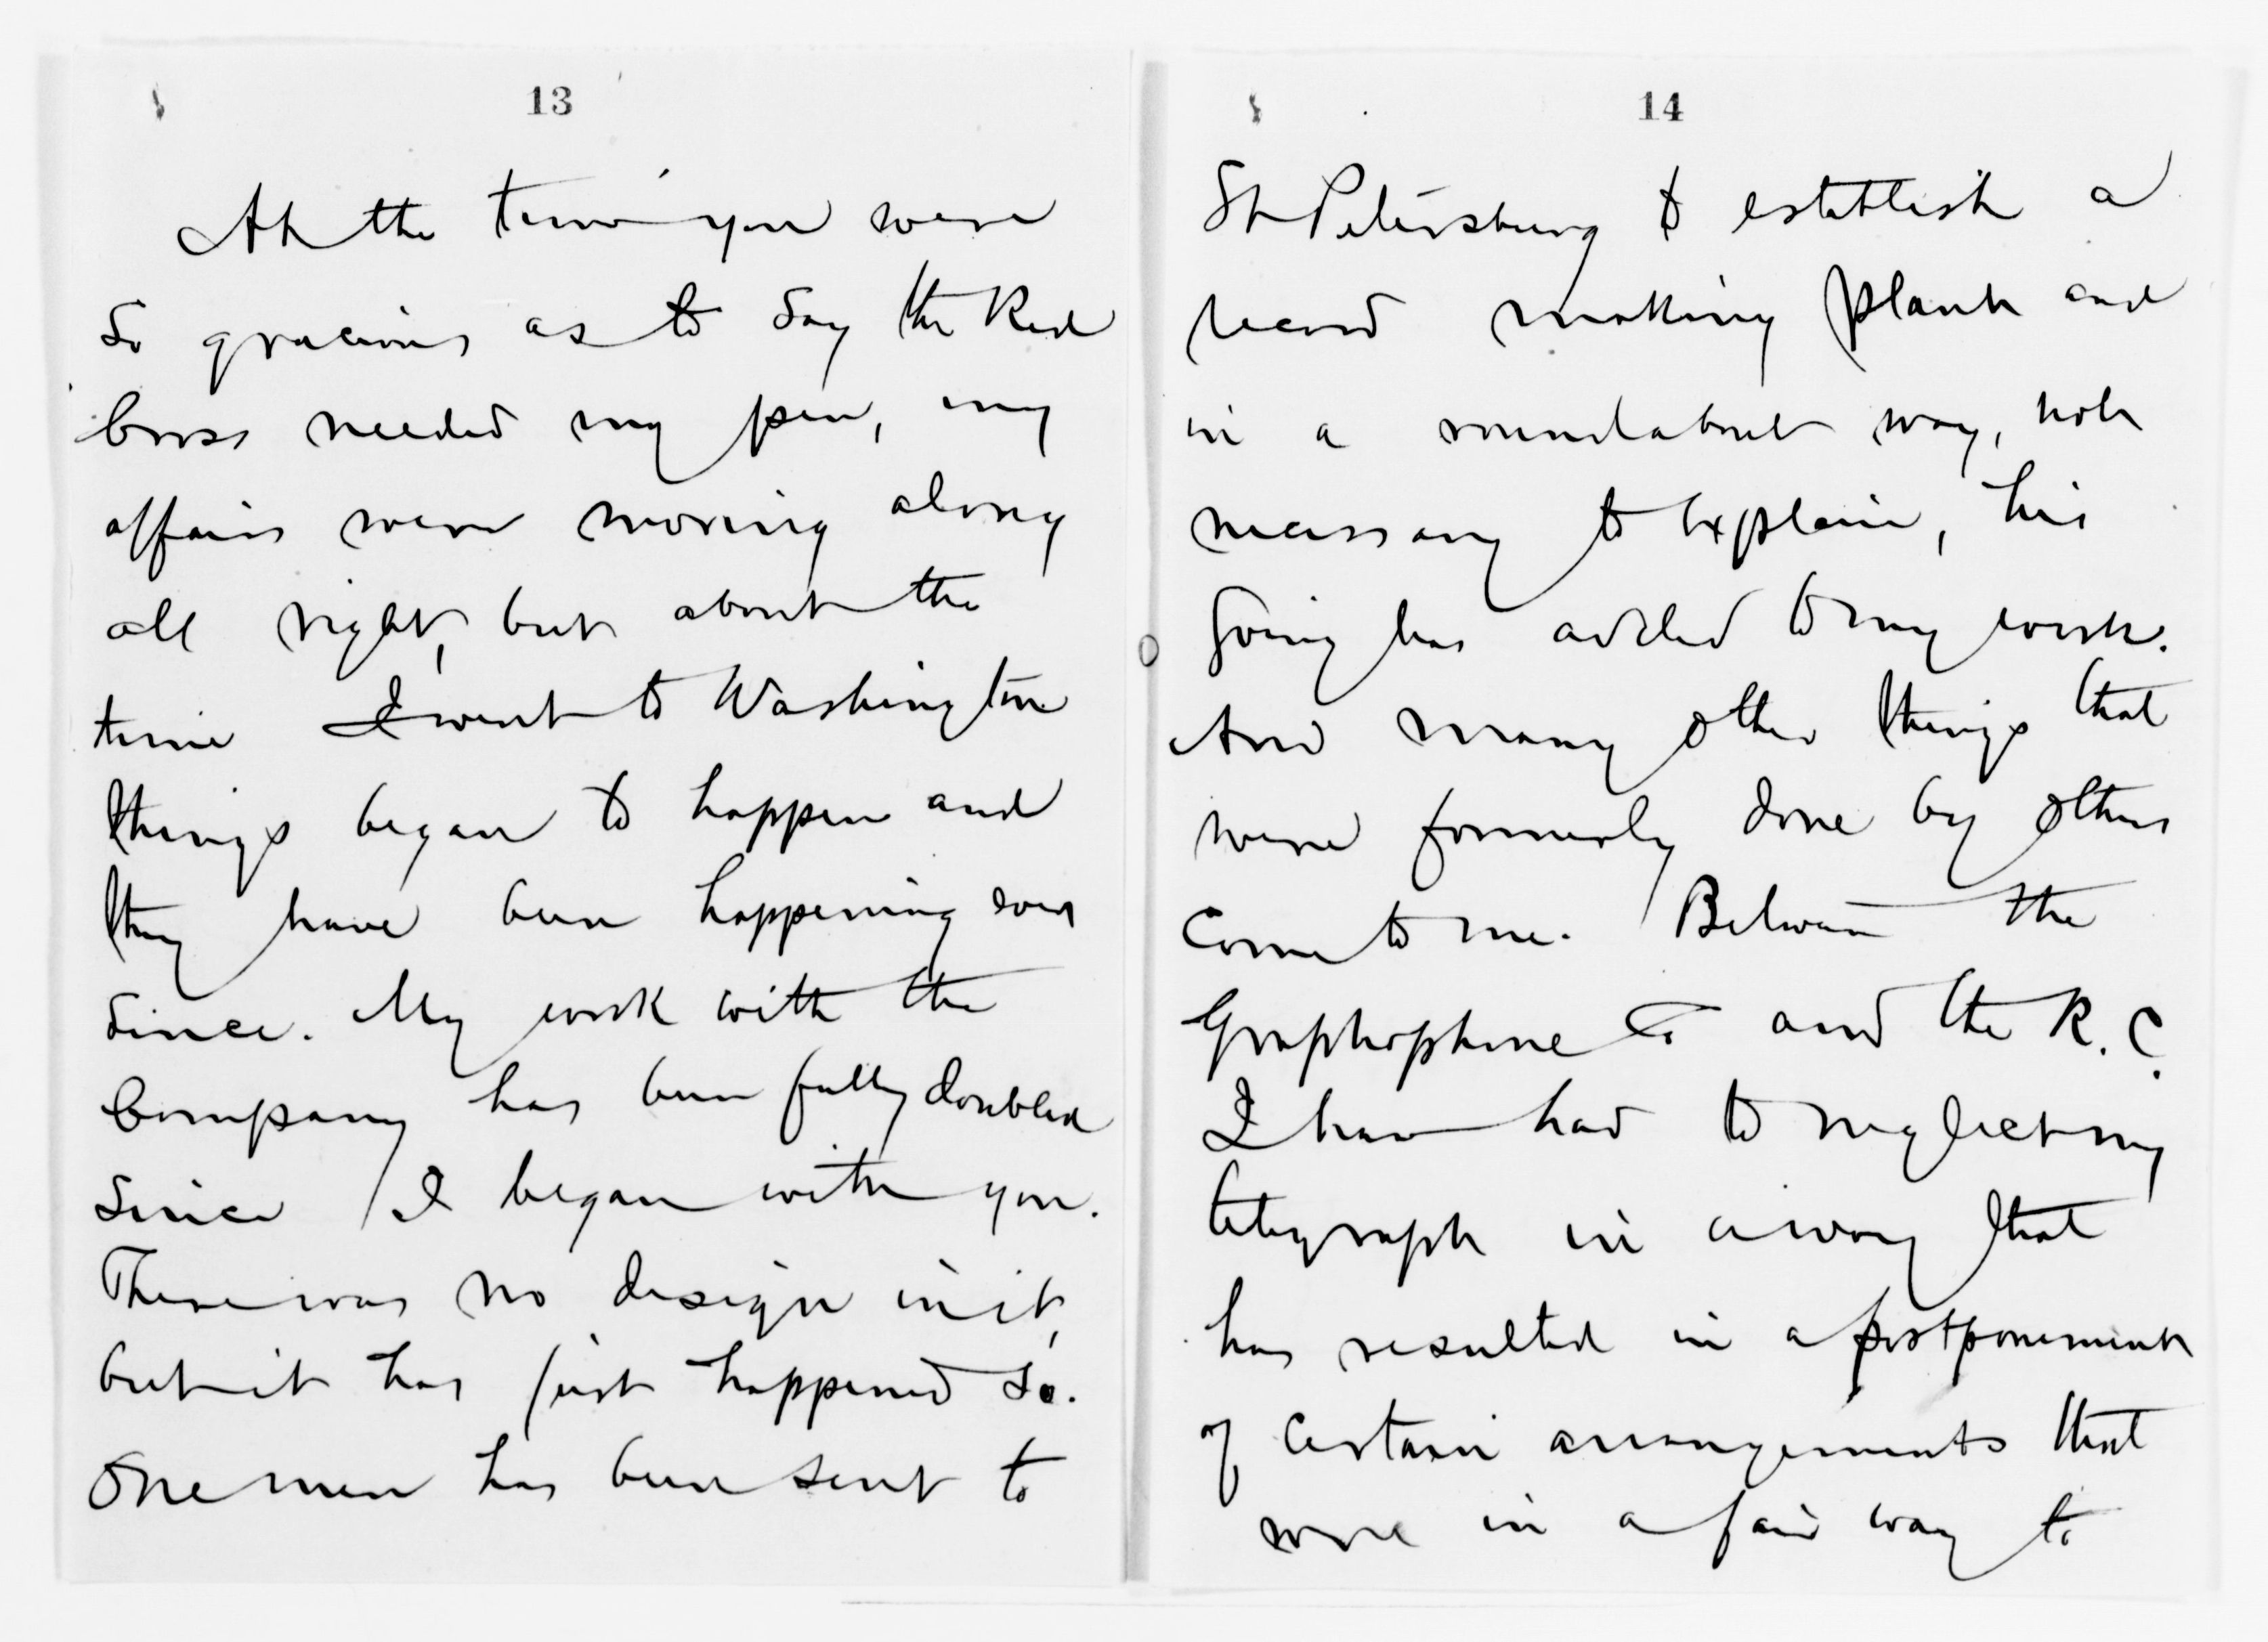 13
At the time you were
so gracious as to say the Red
Cross needed my pen, my
affairs were moving along
all right, but about the
time I went to Washington
things began to happen and
they have been happening ever
since. My work with the
Company has been fully doubled
since I began with you.
There was no design in it,
but it has just happened so.
One man has been sent to
14
St Petersburg to establish a
record making plant and
in a roundabout way, not
necessary to explain, his
going has added to my work.
And many other things that
were formerly done by others
come to me. Between the
Graphophone Co and the R. C.
I have had to neglect my
telegraph in a way that
has resulted in a postponement
of certain arrangements that
were in a fair way to